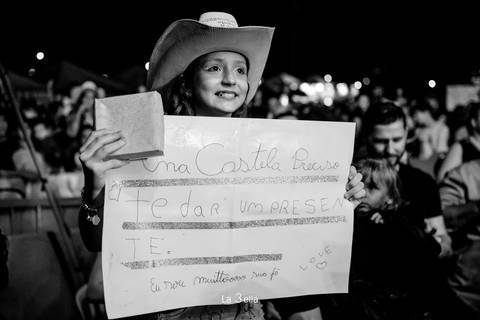 Ana Castela Preciso
te dar um presen
te.
Eu sou muitooooo sua fã
LOVE
La Bella